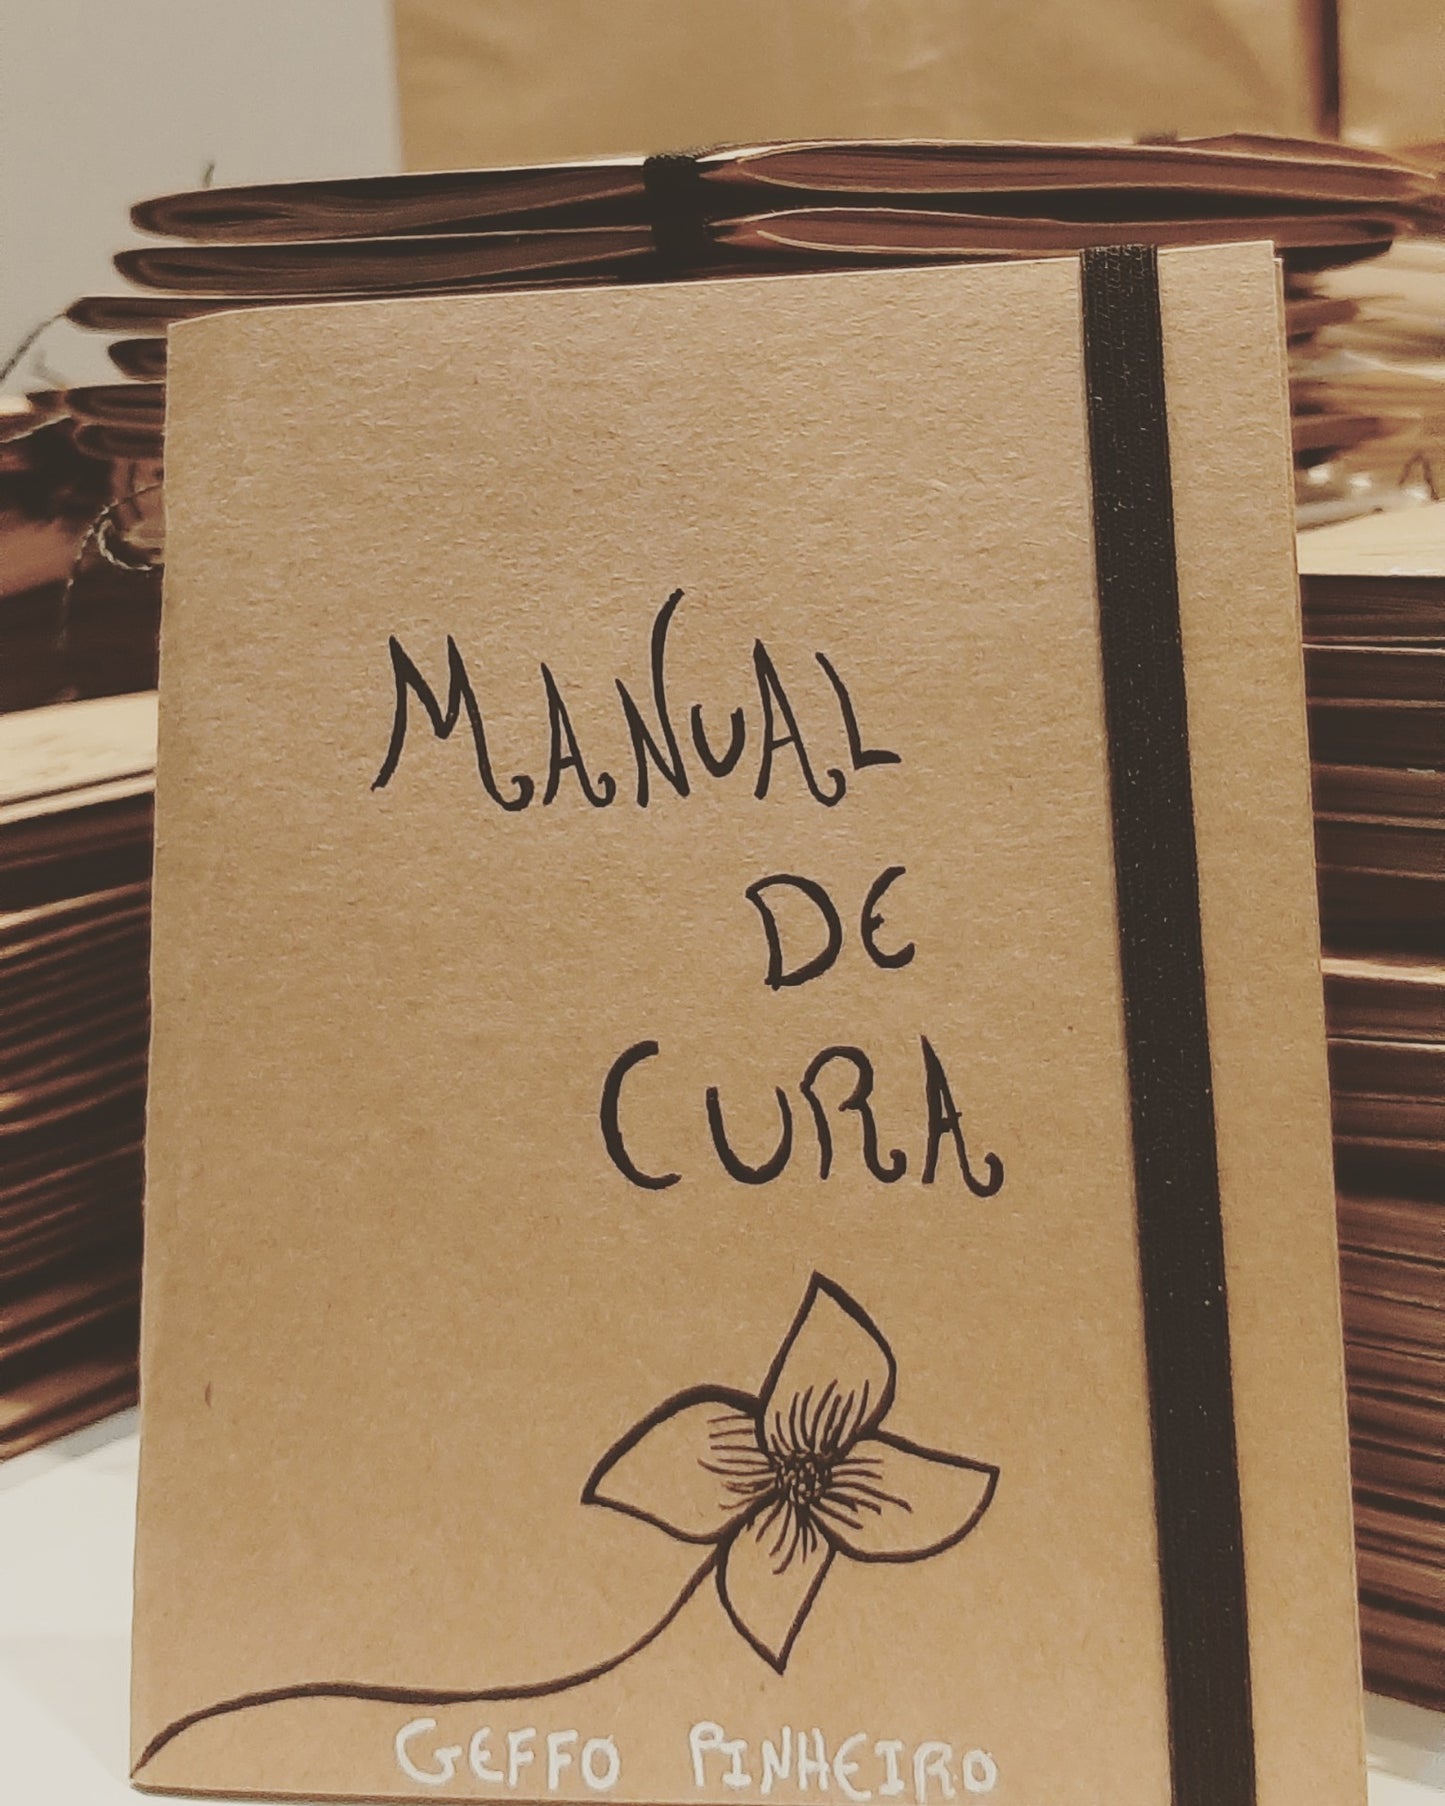 MANUAL
DE
CURA
GEFFO PINHEIRO